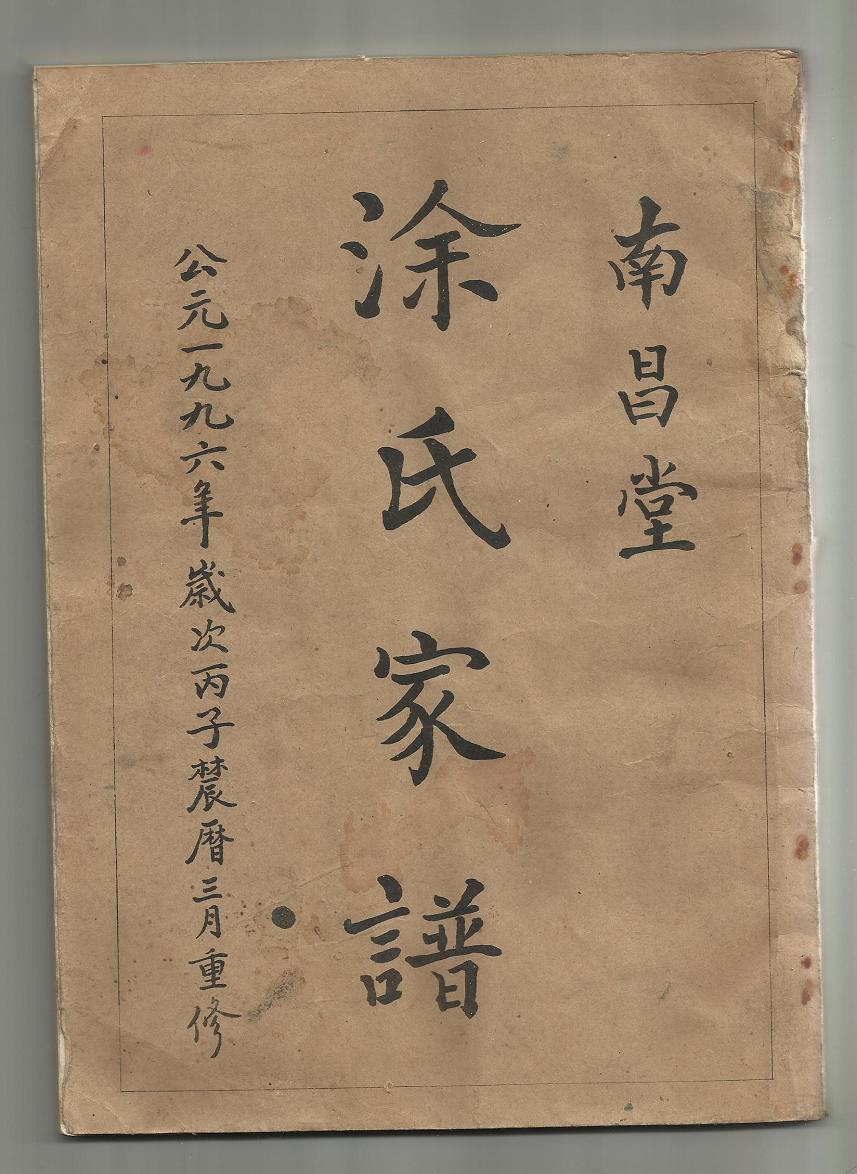 南昌堂
涂氏家譜
公元一九九六年歲次丙子農曆三月重修